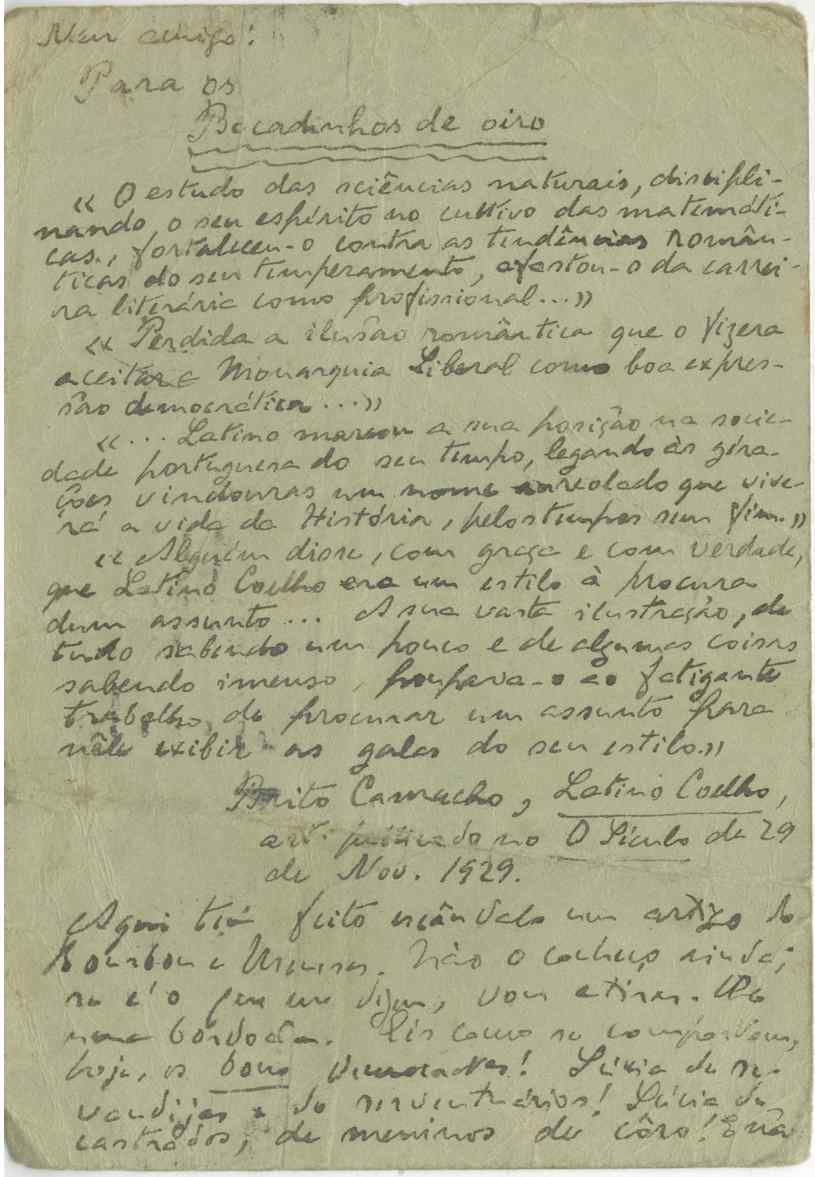 Meu amigo:
Para os
Bocadinhos de oiro
« O estudo das sciências naturais, discipli-
nando o seu espírito no cultivo das matemáti-
cas, fortaleceu-o contra as tendências român-
ticas do seu temperamento, afastou-o da carrei-
ra literária como profissional...»
« Perdida a ilusão romântica que o fizera
aceitar a Monarquia Liberal como boa expres-
são democrática...»
«... Latino marcou a sua posição na socie-
dade portuguesa do seu tempo, legando às gera-
ções vindouras um nome aureolado que vive-
rá a vida da História, pelos tempos sem fim.»
« Alguém disse, com graça e com verdade,
que Latino Coelho era um estilo à procura
dum assunto... A sua vasta ilustração, de
tudo sabendo um pouco e de algumas coisas
sabendo imenso, poupava-o ao fatigante
trabalho de procurar um assunto para
nêle exibir as galas do seu estilo.»
Brito Camacho, Latino Coelho,
art. publicado no O Século de 29
de Nov. 1929.
Aqui tem feito escândalo um artigo do
Bourbon e Meneses. Não o conheço ainda;
se é o que me dizem, vou atirar-lhe
uma bordoada. Eis como se comportam,
hoje, os bons democratas! Súcia de se-
vandijas e de serventuários! Súcia de
castrados, de meninos de côro! E não